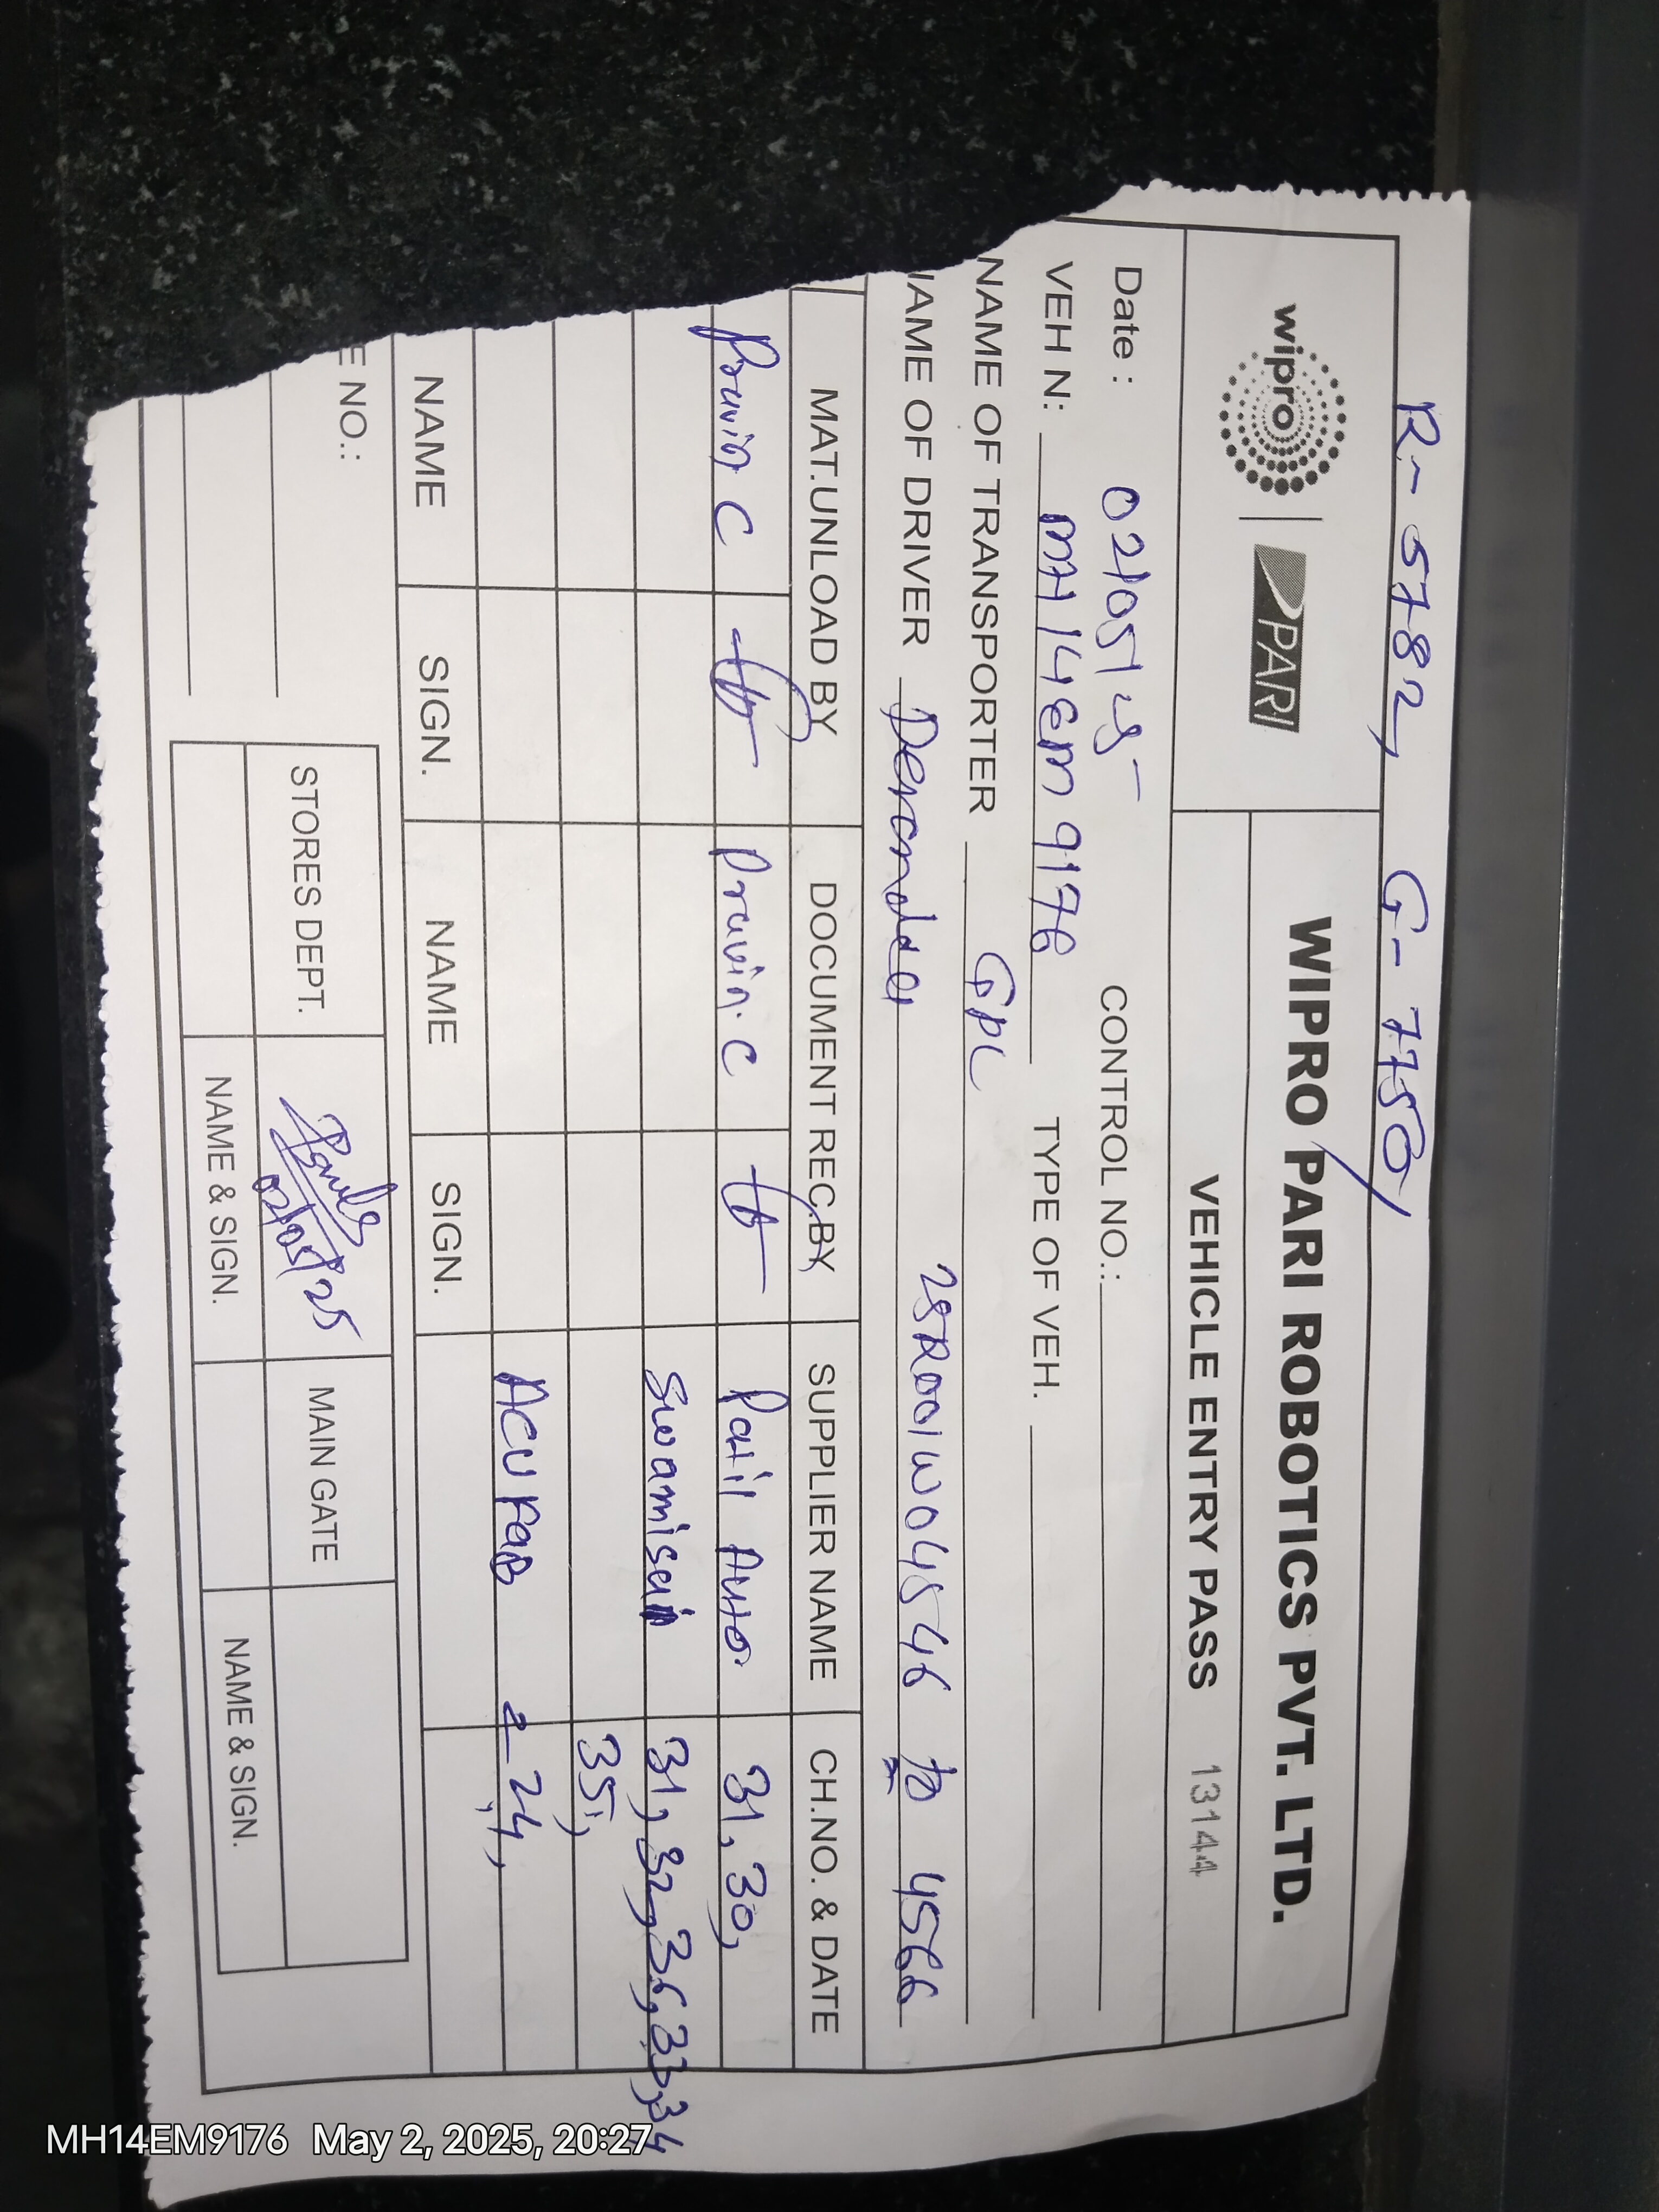 R- 5782, G- 7750,
wipro | PARI WIPRO PARI ROBOTICS PVT. LTD.
VEHICLE ENTRY PASS 13144
Date : 02/05/25 CONTROL NO.:
VEH N: MH14em 9176 TYPE OF VEH.
NAME OF TRANSPORTER GPL
AME OF DRIVER 25R001W04546 to 4566
MAT.UNLOAD BY DOCUMENT REC.BY SUPPLIER NAME CH.NO. & DATE
Pravin C Pravin. C Patil Auto. 31, 30,
Swamisai 31, 32, 36, 33, 34
35,
ACU FAB 24,
NAME SIGN. NAME SIGN.
E NO.: STORES DEPT. 02/05/25 MAIN GATE
NAME & SIGN. NAME & SIGN.
MH14EM9176 May 2, 2025, 20:27